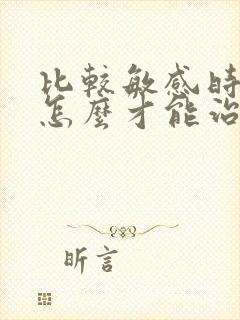 比較敏感時
怎麼才能治
昕言